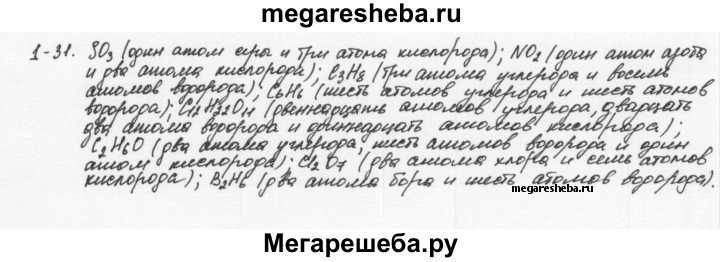 megaresheba.ru
1-31. SO3 (один атом серы и три атома кислорода); NO2 (один атом азота
и два атома кислорода); C3H8 (три атома углерода и восемь
атомов водорода); C6H6 (шесть атомов углерода и шесть атомов
водорода); C12H22O11 (двенадцать атомов углерода, двадцать
два атома водорода и одиннадцать атомов кислорода);
C2H6O (два атома углерода, шесть атомов водорода и один
атом кислорода); Cl2O7 (два атома хлора и семь атомов
кислорода); B2H6 (два атома бора и шесть атомов водорода).
megaresheba.ru
Мегарешеба.ру